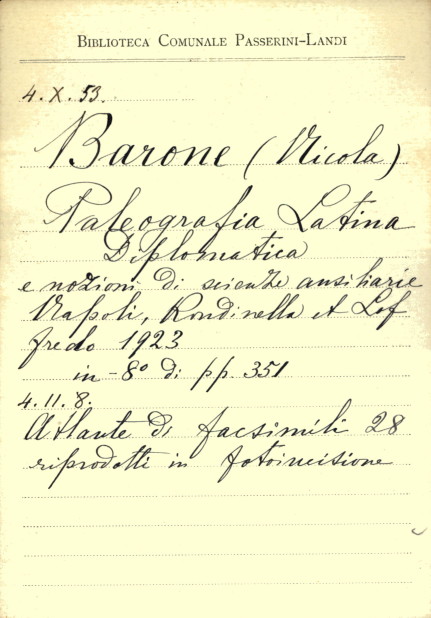 BIBLIOTECA COMUNALE PASSERINI-LANDI
4. X. 53.
Barone (Nicola)
Paleografia Latina
Diplomatica
e nozioni di scienze ausiliarie
Napoli, Rondinella et Lof
fredo 1923
in-8° di pp. 351
4.11.8.
Atlante di facsimili 28
riprodotti in fotoincisione